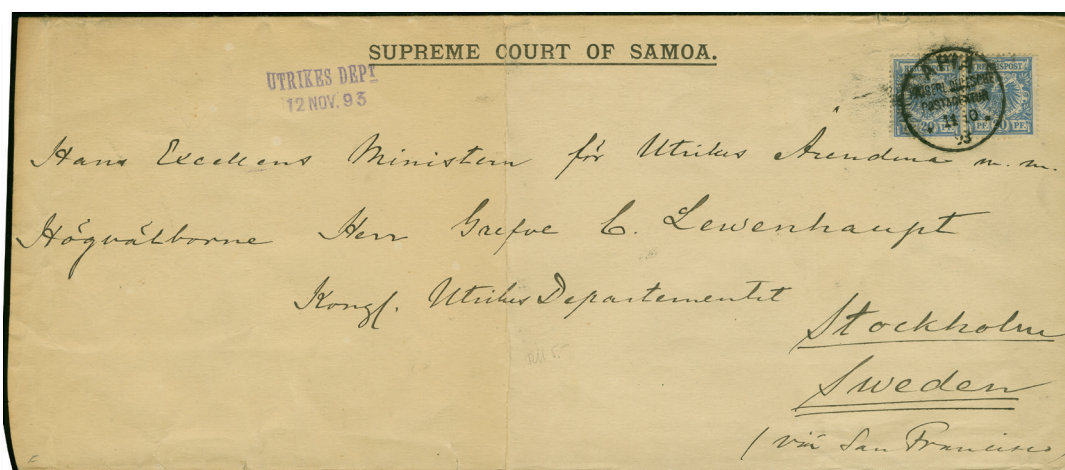 SUPREME COURT OF SAMOA.
UTRIKES DEPT
12 NOV. 93
REICHSPOST
20 PF
APIA
KAISERL. DEUTSCHE
POSTAGENTUR
11 10
93
Hans Excellens Ministern för Utrikes Ärendena m.m.
Högvälborne Herr Grefve C. Lewenhaupt
Kongl. Utrikes Departementet
Stockholm
Sweden
(via San Francisco)